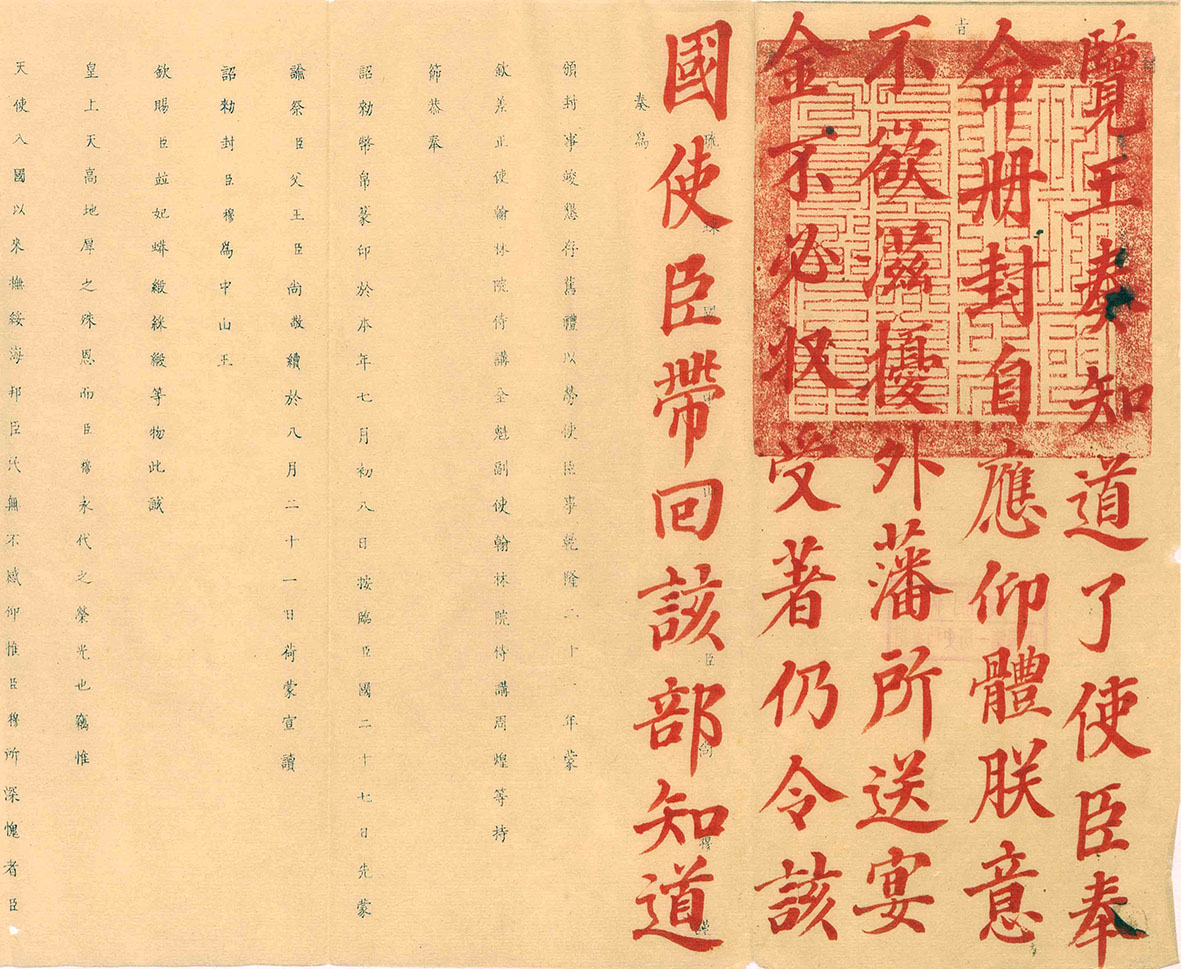 覽王奏知道了使臣奉
命册封自應仰體朕意
不欲滋擾外藩所送宴
金不必収受著仍令該
國使臣帶回該部知道
奏爲
頒封事竣懇存舊禮以勞使臣事乾隆二十一年蒙
欽差正使翰林院侍講全魁副使翰林院侍講周煌等持
節恭奉
詔勅幣帛篆印於本年七月初八日按臨臣國二十七日先蒙
諭祭臣父王臣尚敬續於八月二十一日荷蒙宣讀
詔勅封臣穆爲中山王
欽賜臣並妃蟒緞綵緞等物此誠
皇上天高地厚之殊恩而臣穆永代之榮光也竊惟
天使入國以來撫綏海邦臣民無不感仰惟臣穆所深愧者臣